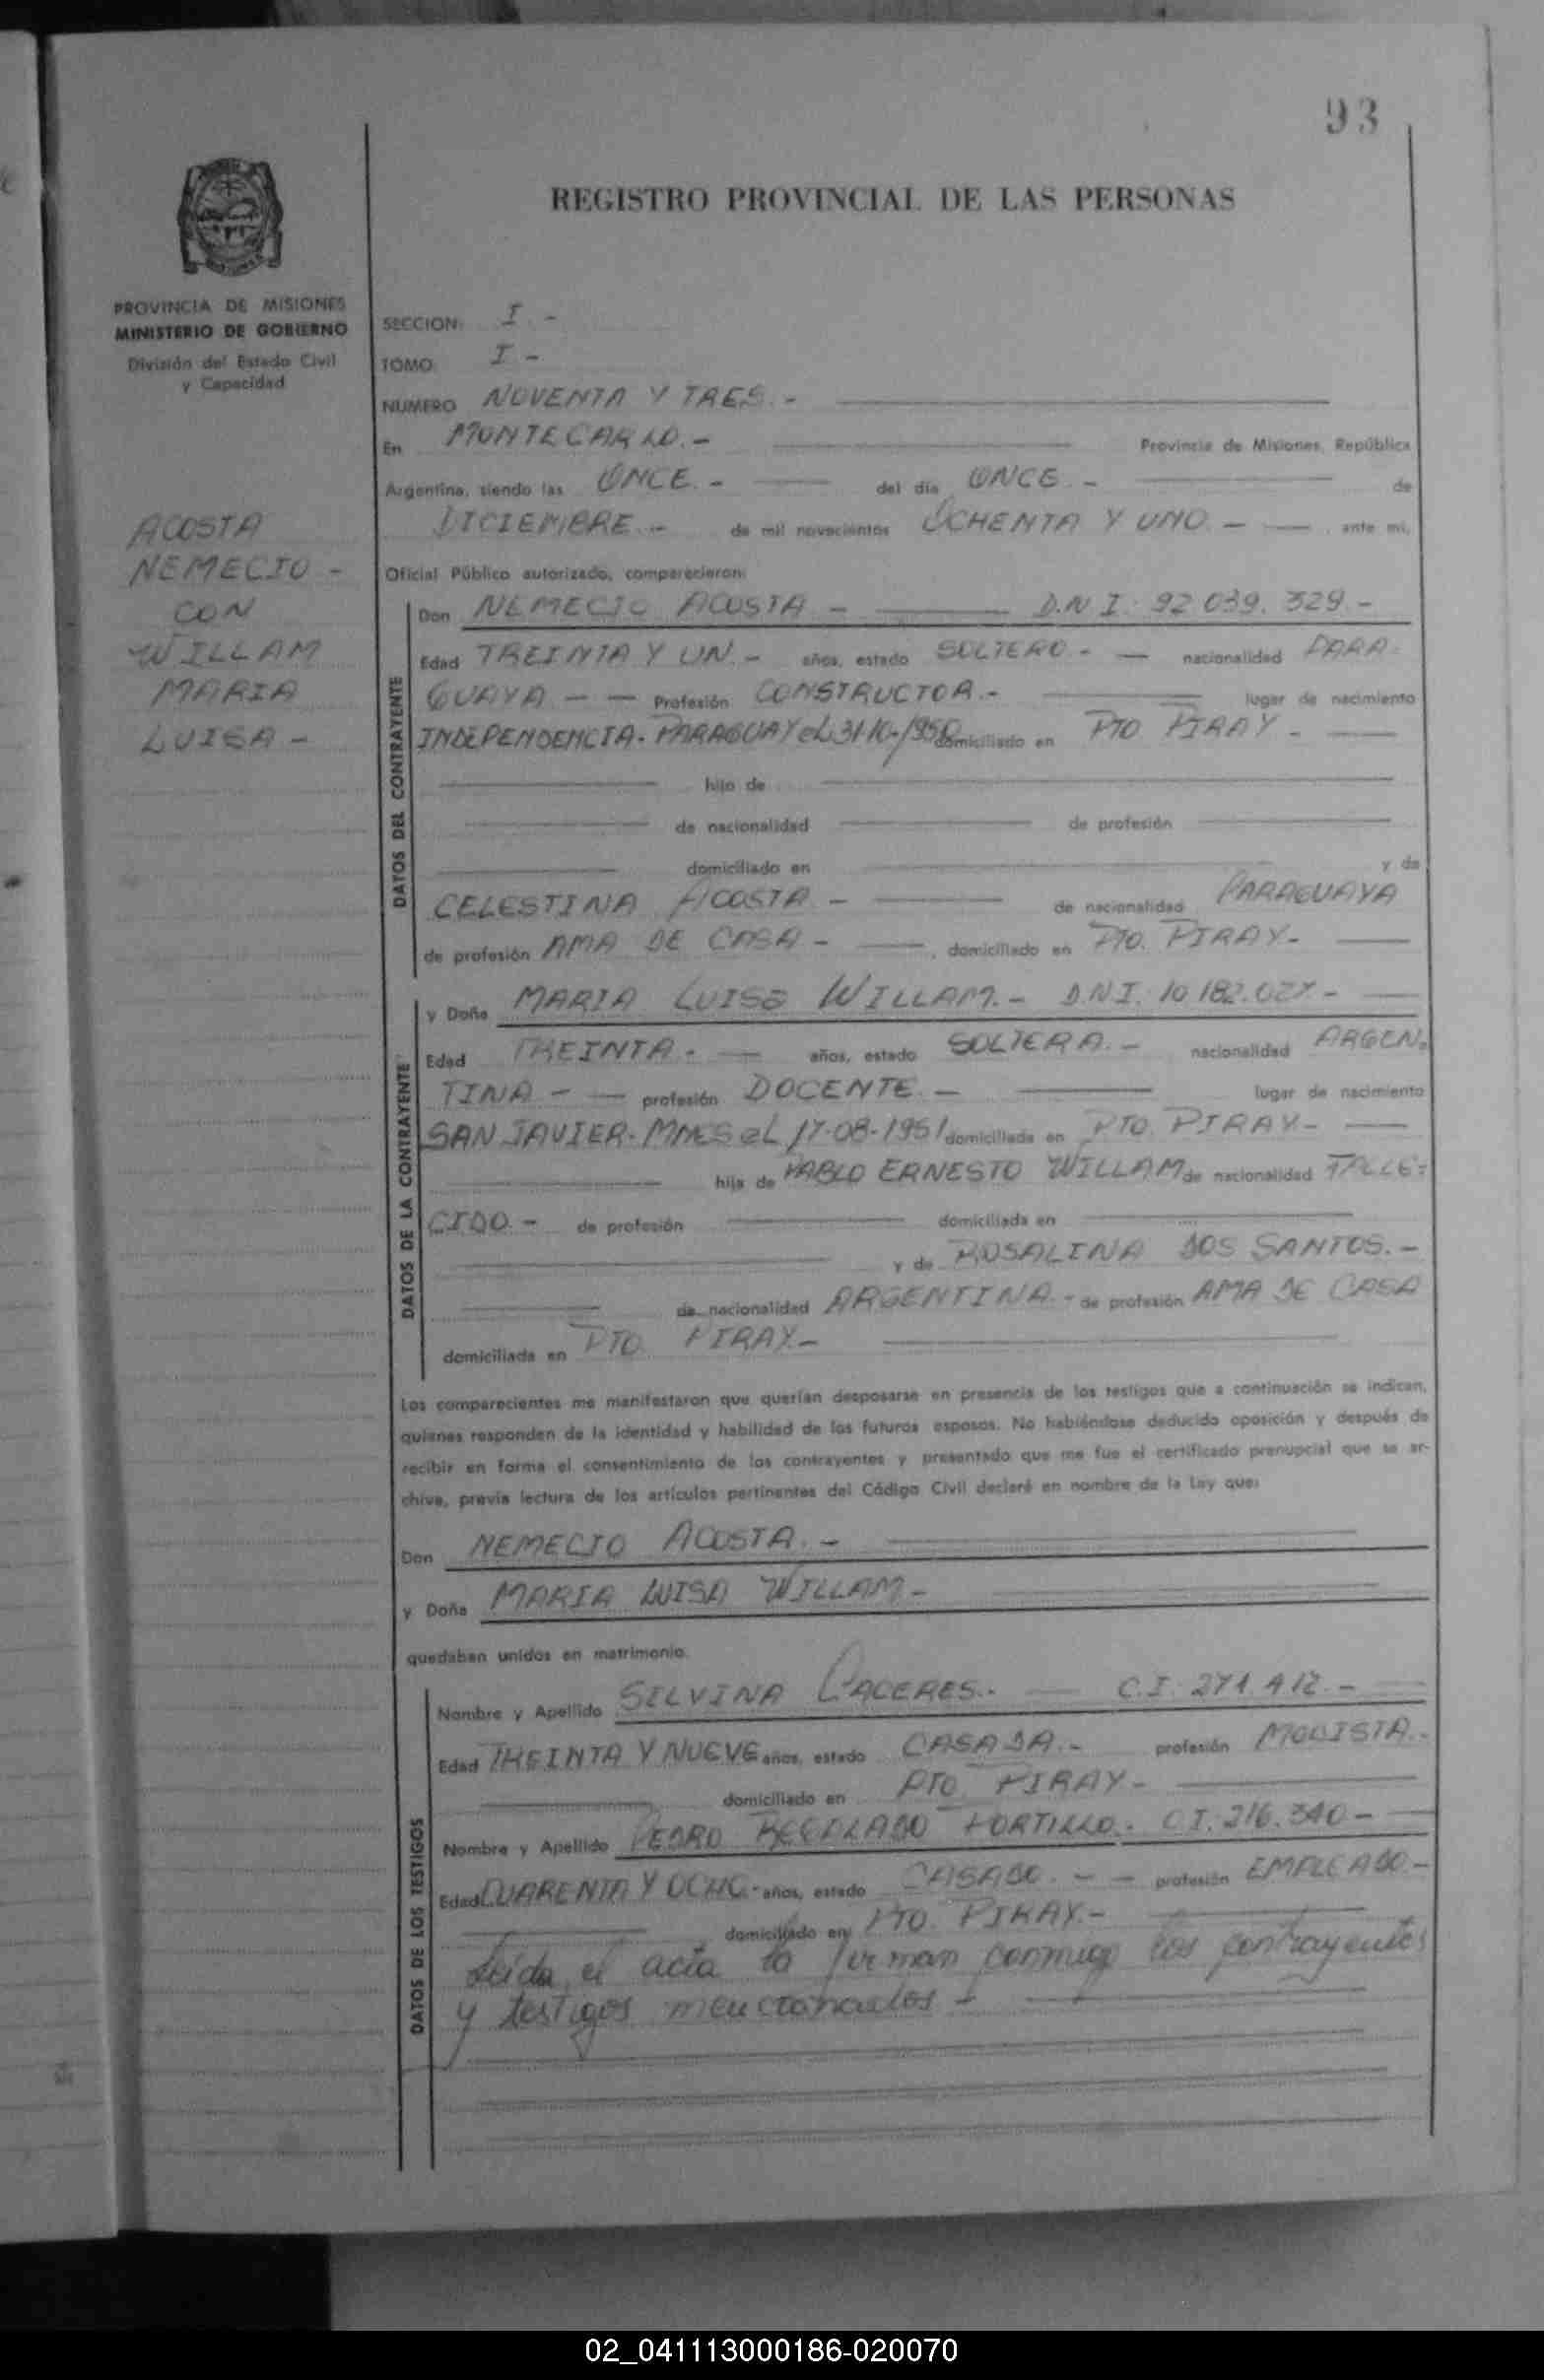 93
REGISTRO PROVINCIAL DE LAS PERSONAS
PROVINCIA DE MISIONES
MINISTERIO DE GOBIERNO
División del Estado Civil
y Capacidad
ACOSTA
NEMECIO -
CON
WILLAM
MARIA
LUISA -
SECCION: I. -
TOMO: I -
NUMERO NOVENTA Y TRES. -
En MONTECARLO. - Provincia de Misiones, República
Argentina, siendo las ONCE. - del día ONCE. - de
DICIEMBRE. - de mil novecientos OCHENTA Y UNO. - ante mi,
Oficial Público autorizado, comparecieron:
DATOS DEL CONTRAYENTE
Don NEMECIO ACOSTA - D.N.I. 92.039.329.-
Edad TREINTA Y UN. - años, estado SOLTERO. - nacionalidad PARA-
GUAYA - - Profesión CONSTRUCTOR. - lugar de nacimiento
INDEPENDENCIA - PARAGUAY el 31-10-1950 domiciliado en PTO PIRAY. -
hijo de
de nacionalidad de profesión
domiciliado en y de
CELESTINA ACOSTA - de nacionalidad PARAGUAYA
de profesión AMA DE CASA - , domiciliado en PTO. PIRAY-
DATOS DE LA CONTRAYENTE
y Doña MARIA LUISA WILLAM. - D.N.I. 10.182.027.-
Edad TREINTA. - años, estado SOLTERA. - nacionalidad ARGEN-
TINA - - profesión DOCENTE. - lugar de nacimiento
SAN JAVIER - MNES el 17-08-1951 domiciliada en PTO. PIRAY-
hija de PABLO ERNESTO WILLAM de nacionalidad FALLE=
CIDO. - de profesión domiciliada en
y de ROSALINA DOS SANTOS. -
de nacionalidad ARGENTINA. - de profesión AMA DE CASA
domiciliada en PTO. PIRAY.-
Los comparecientes me manifestaron que querían desposarse en presencia de los testigos que a continuación se indican,
quienes responden de la identidad y habilidad de los futuros esposos. No habiéndose deducido oposición y después de
recibir en forma el consentimiento de los contrayentes y presentado que me fue el certificado prenupcial que se ar-
chiva, previa lectura de los artículos pertinentes del Código Civil declaré en nombre de la Ley que:
Don NEMECIO ACOSTA. -
y Doña MARIA LUISA WILLAM -
quedaban unidos en matrimonio.
DATOS DE LOS TESTIGOS
Nombre y Apellido SILVINA CACERES. - C.I. 271.412. -
Edad TREINTA Y NUEVE años, estado CASADA. - profesión MODISTA. -
domiciliado en PTO. PIRAY-
Nombre y Apellido PEDRO PORTILLO. C.I. 216.340 -
Edad CUARENTA Y OCHO - años, estado CASADO. - - profesión EMPLEADO. -
domiciliado en PTO. PIRAY. -
Leída el acta la firman conmigo los contrayentes
y testigos mencionados -
02_041113000186-020070